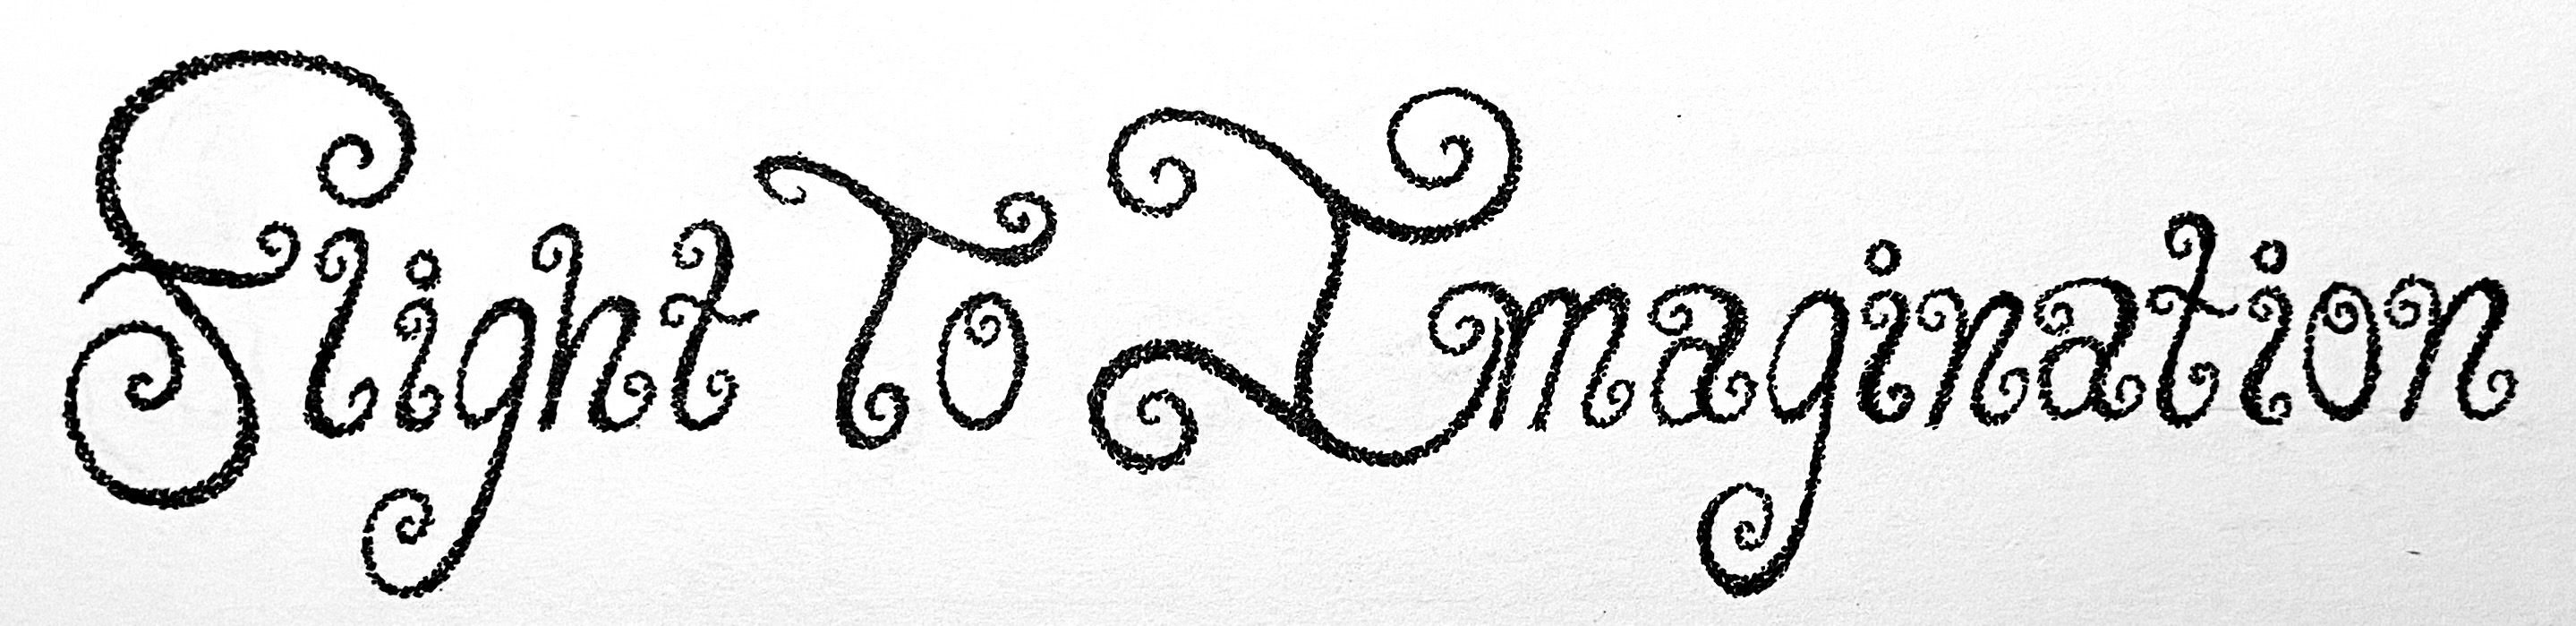 Flight To Imagination